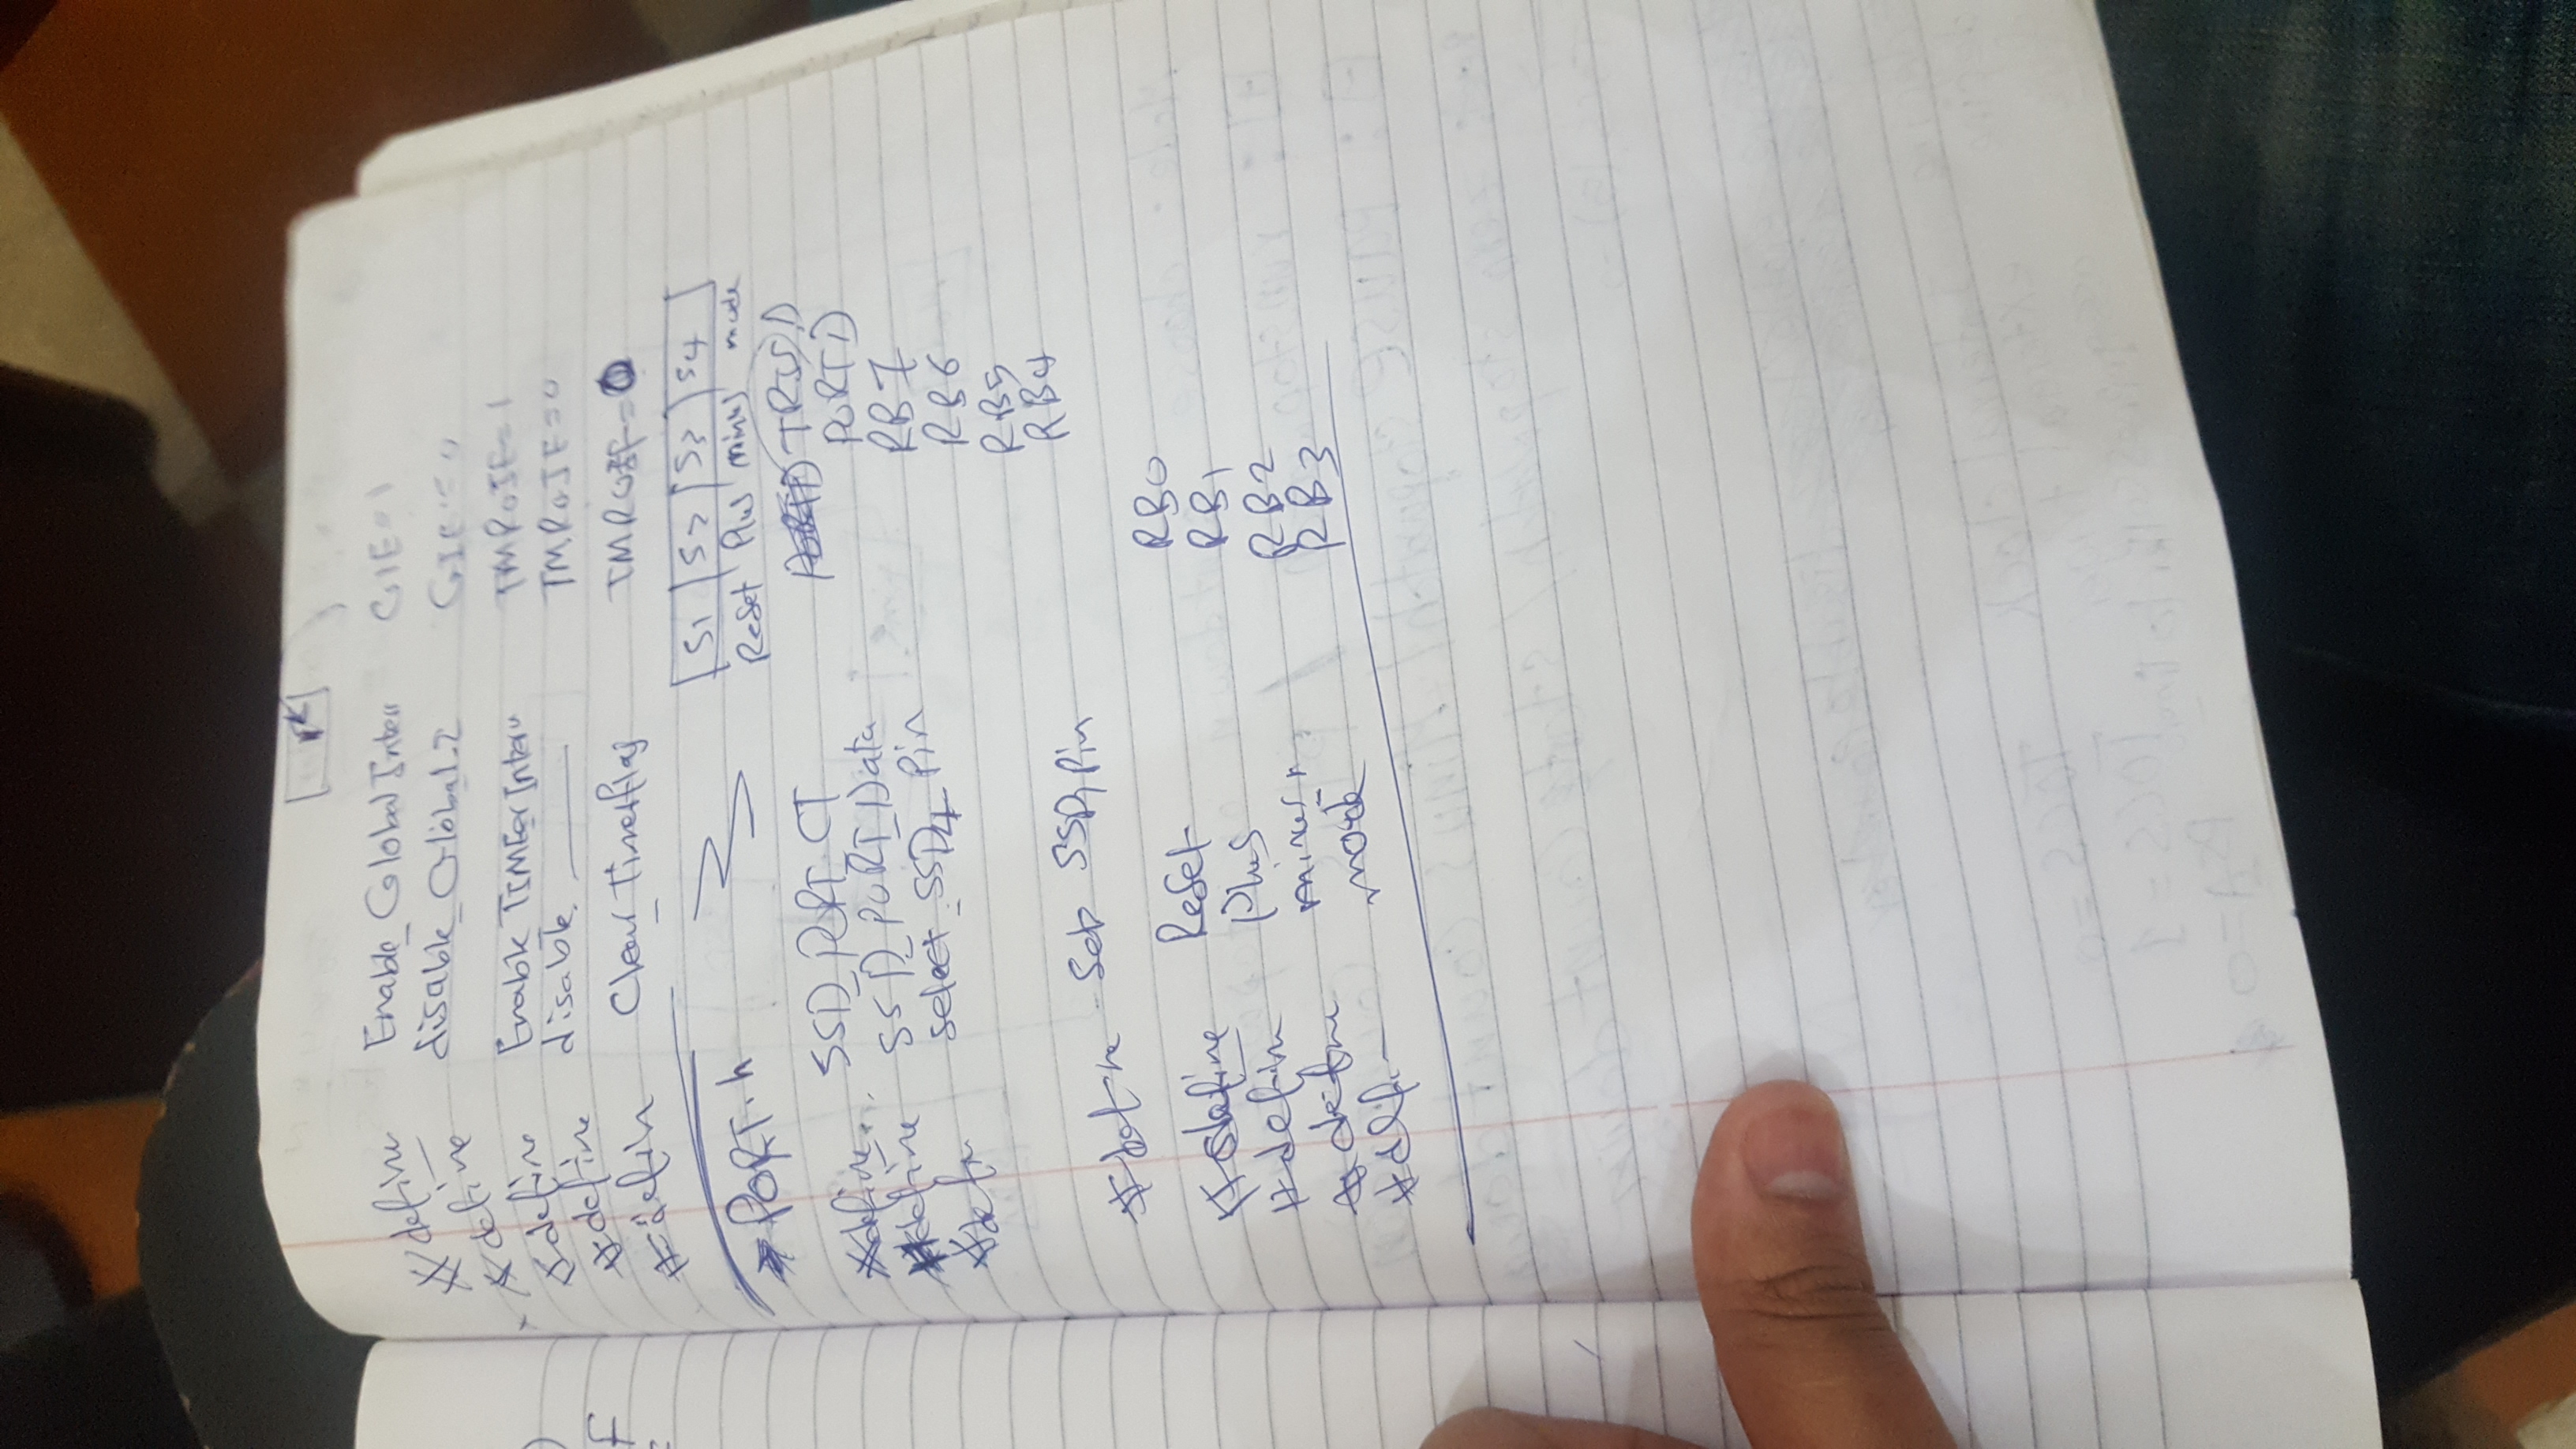 #define Enable_GlobalInterr GIE=1
#define disable_Global-I GIE=0
#define Enable TIMEer Interu TMR0IE=1
#define disable. ——— TMR0IE=0
#define Clear_Timerflag TMR0IF=0
S1 S2 S3 S4
Reset Plus minus mode
PORT.h
#define SSD_PORT_CT TRISD
#define SSD_PORT_Data PORTD
#defin select_SSD4_Pin RB7
RB6
RB5
RB4
#define Set SSD1 Pin
#define Reset RB0
#define Plus RB1
#define minus RB2
#defin mode RB3